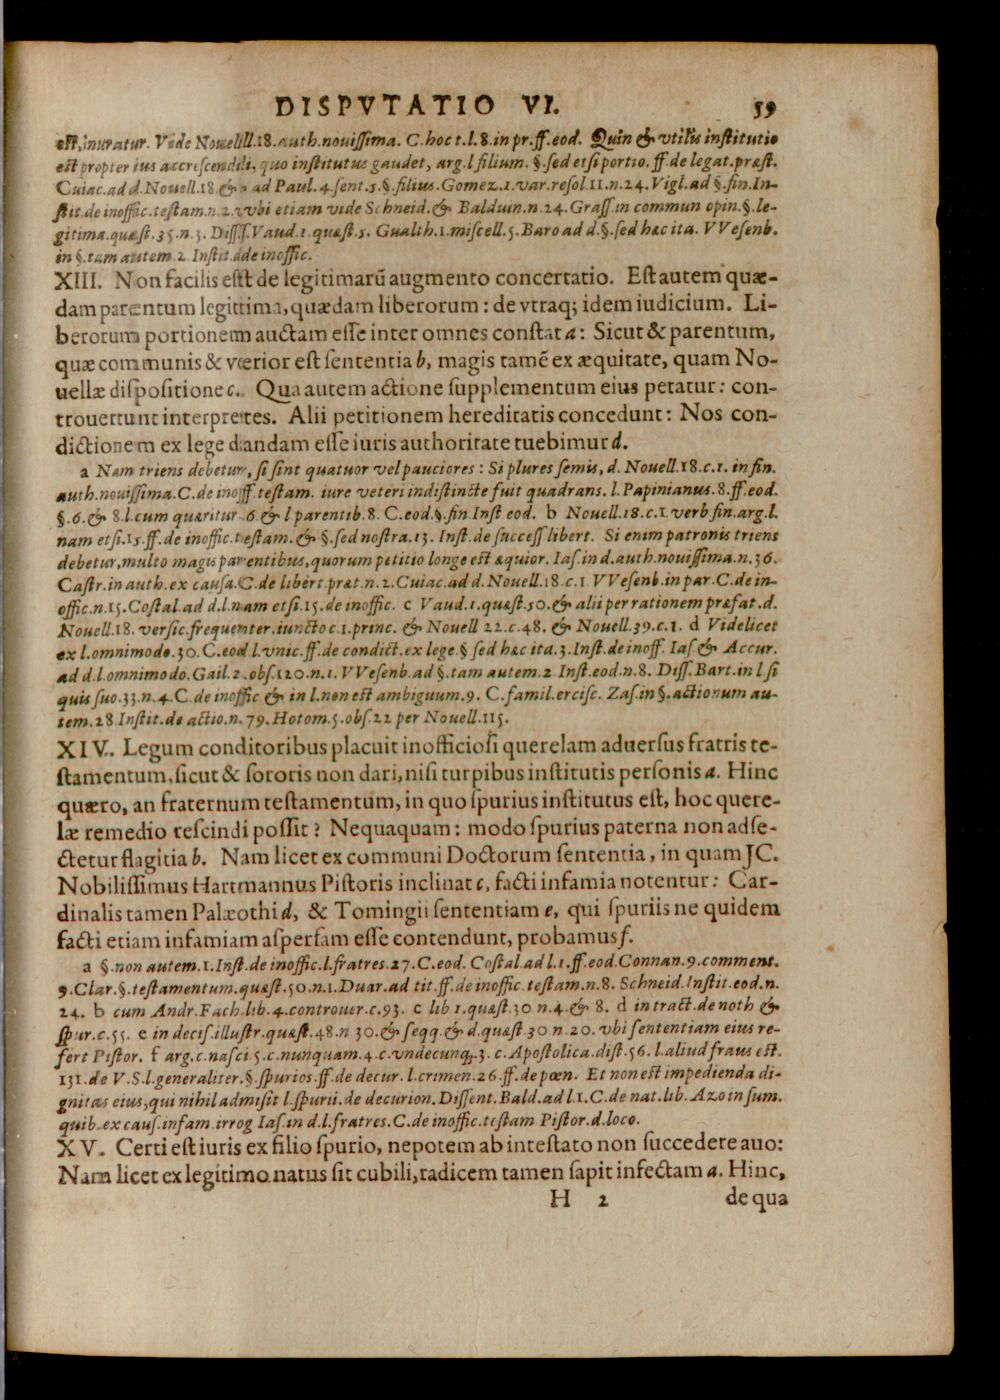 DISPVTATIO VI. 59
est, inuratur. Vide Nouell. 18. auth. nouissima. C. hoc t. l. 8. in pr. ff. eod. Quin & vtilis institutio
est propter ius accrescendi, quo institutus gaudet, arg. l filium. §. sed etsi portio. ff. de legat. præst.
Cuiac. ad d. Nouell. 18. & ad Paul. 4. sent. 5. §. filius. Gomez. 1. var. resol 11. n. 24. Vigl. ad §. fin. In-
stit. de inoffic. testam. n. 2. vbi etiam vide Schneid. & Balduin. n. 24. Grass. in commun opin. §. le-
gitima. quæst. 35. n. 3. Diss. Vaud. 1. quæst. 5. Gualth. 1. miscell. 5. Baro ad d. §. sed hæc ita. VVesenb.
in §. tam autem. 2 Instit. de inoffic.
XIII. Non facilis est de legitimarū augmento concertatio. Est autem quæ-
dam parentum legitima, quædam liberorum: de vtraq; idem iudicium. Li-
berorum portionem auctam esse inter omnes constat a: Sicut & parentum,
quæ communis & verior est sententia b, magis tamē ex æquitate, quam No-
uellæ dispositione c. Qua autem actione supplementum eius petatur: con-
trouertunt interpretes. Alii petitionem hereditatis concedunt: Nos con-
dictionem ex lege dandam esse iuris authoritate tuebimur d.
a Nam triens debetur, si sint quatuor vel pauciores: Si plures semis, d. Nouell. 18. c. 1. in fin.
auth. nouissima. C. de inoff. testam. iure veteri indistincte fuit quadrans. l. Papinianus. 8. ff. eod.
§. 6. & 8. l. cum quæritur. 6. & l parentib. 8. C. eod. §. fin. Inst eod. b Nouell. 18. c. 1. verb fin. arg. l.
nam etsi. 15. ff. de inoffic. testam. & §. sed nostra. 13. Inst. de success libert. Si enim patronis triens
debetur, multo magis parentibus, quorum petitio longe est æquior. Ias. in d. auth. nouissima. n. 36.
Castr. in auth. ex causa. C. de libert. præt. n. 2. Cuiac. ad d. Nouell. 18. c. 1 VVesenb. in par. C. de in-
offic. n. 15. Costal. ad d. l. nam etsi. 15. de inoffic. c Vaud. 1. quæst. 50. & alii per rationem præfat. d.
Nouell. 18. versic. frequenter. iuncto c. 1. princ. & Nouell 22. c. 48. & Nouell. 39. c. 1. d Videlicet
ex l. omnimodo. 30. C. eod. l. vnic. ff. de condict. ex lege. § sed hæc ita. 3. Inst. de inoff. Ias. & Accur.
ad d. l. omnimodo. Gail. 2. obs. 120. n. 1. VVesenb. ad §. tam autem. 2 Inst. eod. n. 8. Diss. Bart. in l. si
quis suo. 33. n. 4. C. de inoffic & in l. non est ambiguum. 9. C. famil. ercisc. Zas. in §. actionum au-
tem. 28 Instit. de actio. n. 79. Hotom. 5. obs. 22 per Nouell. 115.
XIV. Legum conditoribus placuit inofficiosi querelam aduersus fratris te-
stamentum, sicut & sororis non dari, nisi turpibus institutis personis a. Hinc
quæro, an fraternum testamentum, in quo spurius institutus est, hoc quere-
læ remedio rescindi possit? Nequaquam: modo spurius paterna non adse-
ctetur flagitia b. Nam licet ex communi Doctorum sententia, in quam JC.
Nobilissimus Hartmannus Pistoris inclinat c, facti infamia notentur: Car-
dinalis tamen Palæothi d, & Tomingii sententiam e, qui spuriis ne quidem
facti etiam infamiam aspersam esse contendunt, probamus f.
a §. non autem. 1. Inst. de inoffic. l. fratres. 27. C. eod. Costal. ad l. 1. ff. eod. Connan. 9. comment.
9. Clar. §. testamentum. quæst. 50. n. 1. Duar. ad tit. ff. de inoffic. testam. n. 8. Schneid. Instit. eod. n.
24. b cum Andr. Fach. lib. 4. controuer. c. 93. c lib 1. quæst. 30. n. 4. & 8. d in tract. de noth &
spur. c. 55. e in decis. illustr. quæst. 48. n 30. & seqq. & d. quæst. 30 n. 20. vbi sententiam eius re-
fert Pistor. f arg. c. nasci. 5. c. nunquam. 4. c. vndecunq;. 3. c. Apostolica. dist. 56. l. aliud fraus est.
131. de V. S. l. generaliter. §. spurios. ff. de decur. l. crimen. 26. ff. de pœn. Et non est impedienda di-
gnitas eius, qui nihil admisit l. spurii. de decurion. Dissent. Bald. ad l. 1. C. de nat. lib. Azo in sum.
quib. ex caus. infam. irrog Ias. in d. l. fratres. C. de inoffic. testam Pistor. d. loco.
XV. Certi est iuris ex filio spurio, nepotem ab intestato non succedere auo:
Nam licet ex legitimo natus sit cubili, radicem tamen sapit infectam a. Hinc,
H 2 de qua